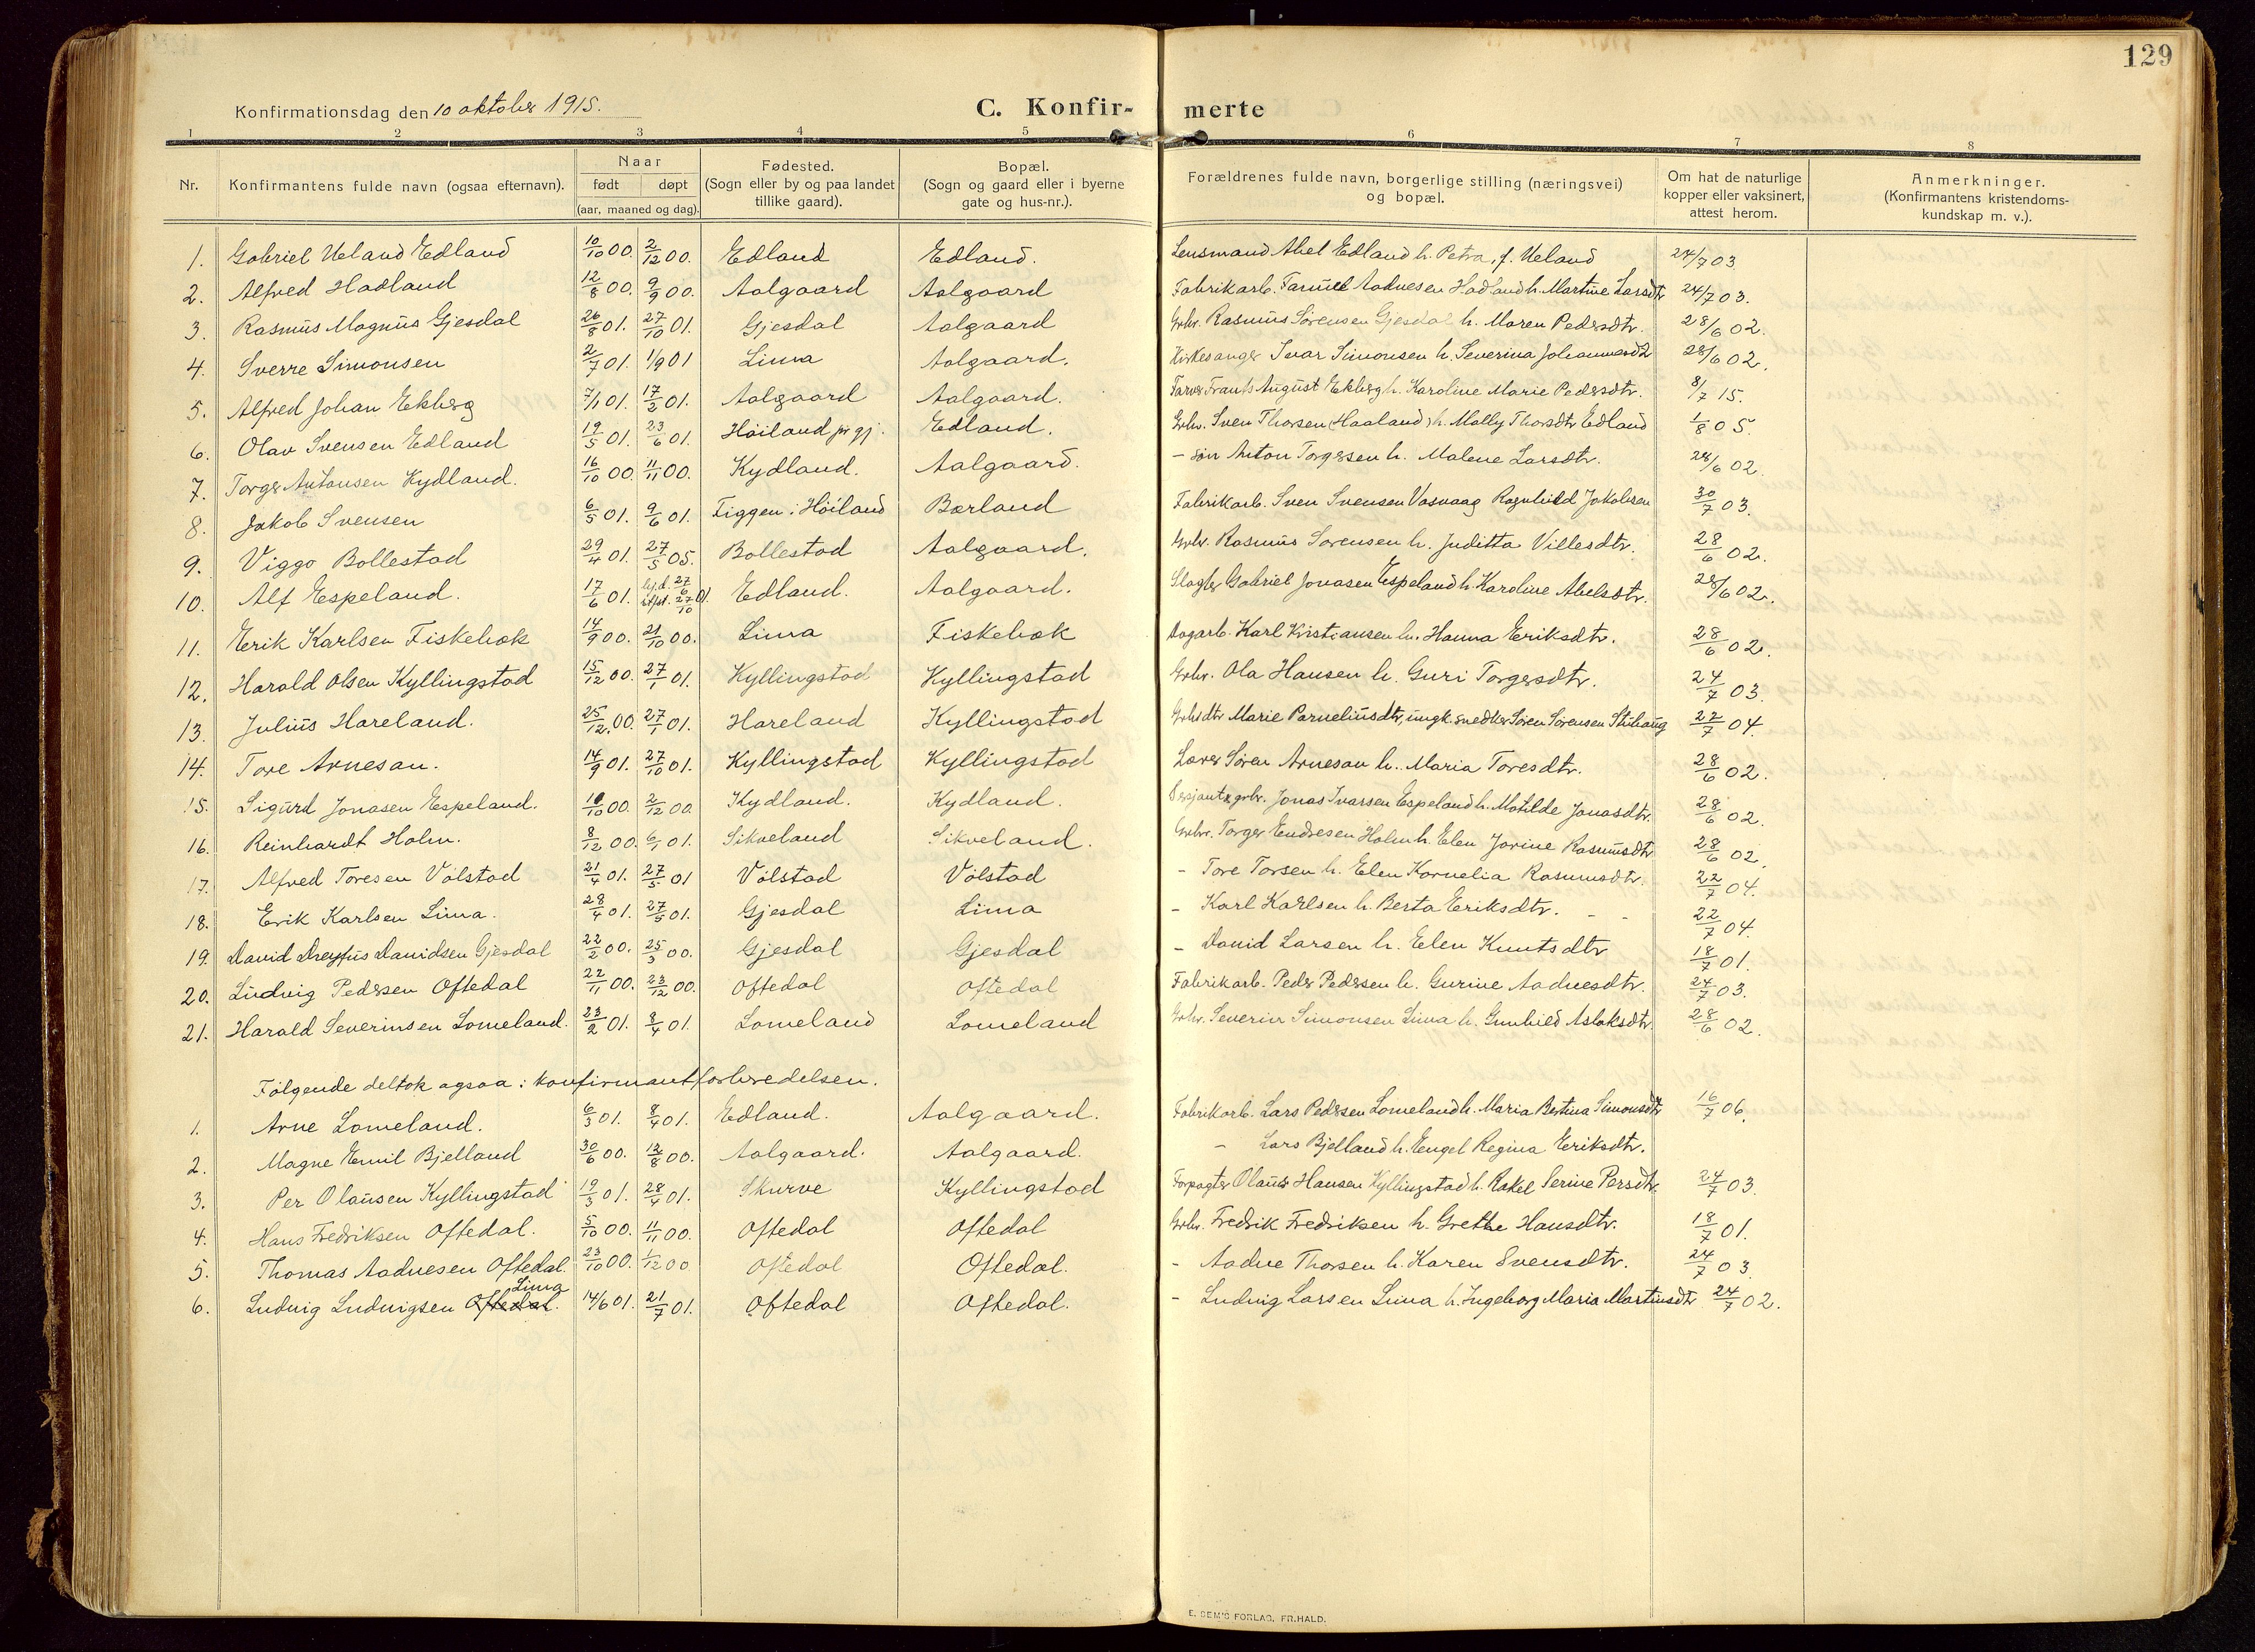 129
Konfirmationsdag den 10 oktober 1915.
C. Konfir-merte
1 2 3 4 5 6 7 8
Nr. Konfirmantens fulde navn (ogsaa efternavn). Naar født døpt (aar, maaned og dag). Fødested. (Sogn eller by og paa landet tillike gaard). Bopæl. (Sogn og gaard eller i byerne gate og hus-nr.). Forældrenes fulde navn, borgerlige stilling (næringsvei) og bopæl. Om hat de naturlige kopper eller vaksinert, attest herom. Anmerkninger. (Konfirmantens kristendoms-kundskap m. v.).
1. Gabriel Ueland Edland 10/10 00. 2/12 00. Edland Edland. Lensmand Abel Edland h. Petra, f. Ueland 24/7 03
2. Alfred Hadland 12/8 00. 9/9 00. Aalgaard Aalgaard Fabrikarb. Aadnesen Hadland h. Martine Larsdtr 24/7 03.
3. Rasmus Magnus Gjesdal 26/8 01. 27/10 01. Gjesdal Aalgaard Grbr. Rasmus Sørensen Gjesdal h. Maren Pedersdtr. 28/6 02.
4. Sverre Simonsen 2/7 01. 1/9 01 Lima Aalgaard. Kirkesanger Ivar Simonsen h. Severina Johannesdt 28/6 02.
5. Alfred Johan Ekberg 7/1 01. 17/2 01. Aalgaard Aalgaard. Farver Frants August Ekberg h. Karoline Marie Pedersdtr. 8/7 15.
6. Olav Svensen Edland 19/5 01. 23/6 01. Høiland pr gj. Edland. Grbr. Sven Thorsen (Haaland) h. Mally Thorsdtr Edland 1/8 05.
7. Torger Antonsen Kydland. 16/10 00. 11/11 00. Kydland. Aalgaard. - søn Anton Torgersen h. Malene Larsdtr. 28/6 02.
8. Jakob Svensen 6/5 01. 9/6 01. Figgen i Høiland Bærland Fabrikarb. Sven Svensen Vasvaag Ragnhild Jakobsen 30/7 03.
9. Viggo Bollestad 29/4 01. 27/5 05. Bollestad Aalgaard. Grbr. Rasmus Sørensen h. Juditta Villesdtr. 28/6 02.
10. Alf Espeland. 17/6 01. hjd. 27/6 stfst. 27/10 01. Edland. Aalgaard. Slagter Gabriel Jonasen Espeland h. Karoline Abelsdtr. 28/6 02.
11. Erik Karlsen Fiskebæk 14/9 00. 21/10 00. Lima Fiskebæk Dagarb. Karl Kristiansen h. Hanna Eriksdtr. 28/6 02.
12. Harald Olsen Kyllingstad 15/12 00. 27/1 01. Kyllingstad Kyllingstad Grbr. Ola Hansen h. Guri Torgersdtr. 24/7 03.
13. Julius Hareland. 25/12 00. 27/1 01. Hareland Kyllingstad Grbrsdtr Marie Parneliusdtr, ungk. snedker Søren Sørensen Stuhaug 22/7 04.
14. Tore Arnesan. 14/9 01. 27/10 01. Kyllingstad Kyllingstad Lærer Søren Arnesan h. Maria Toresdtr. 28/6 02.
15. Sigurd Jonasen Espeland. 10/10 00. 2/12 00. Kydland. Kydland. Sersjant & grbr. Jonas Ivarsen Espeland h. Matilde Jonasdtr. 28/6 02.
16. Reinhardt Holm. 8/12 00. 6/1 01. Sikveland Sikveland. Grbr. Torger Endresen Holm h. Elen Jorine Rasmusdtr 28/6 02.
17. Alfred Toresen Vølstad 21/4 01. 27/5 01 Vølstad Vølstad - Tore Torsen h. Elen Kornelia Rasmusdtr. 22/7 04.
18. Erik Karlsen Lima. 28/4 01. 27/5 01. Gjesdal Lima - Karl Karlsen h. Berta Eriksdtr. - - 22/7 04.
19. David Dreyfus Davidsen Gjesdal 22/2 00. 25/3 00. Gjesdal Gjesdal - David Larsen h. Elen Knutsdtr 18/7 01.
20. Ludvig Pedersen Oftedal 22/11 00. 23/12 00. Oftedal Oftedal Fabrikarb. Peder Pedersen h. Gurine Aadnesdtr. 24/7 03.
21. Harald Severinsen Lomeland. 23/2 01. 8/4 01. Lomeland Lomeland Grbr. Severin Simonsen Lima h. Gunhild Aslaksdtr. 28/6 02.
Følgende deltok ogsaa i konfirmantforberedelsen.
1. Arne Lomeland. 6/3 01. 8/4 01. Edland. Aalgaard. Fabrikarb. Lars Pedersen Lomeland h. Maria Bertina Simonsdtr 16/7 06.
2. Magne Emil Bjelland 30/6 00. 12/8 00. Aalgaard. Aalgaard. - Lars Bjelland h. Engel Regina Eriksdtr.
3. Per Olausen Kyllingstad 19/3 01. 28/4 01. Skurve Kyllingstad Forpagter Olaus Hansen Kyllingstad h. Rakel Serine Persdtr. 24/7 03.
4. Hans Fredriksen Oftedal. 5/10 00. 11/11 00. Oftedal Oftedal Grbr. Fredrik Fredriksen h. Grethe Hansdtr. 18/7 01.
5. Thomas Aadnesen Oftedal. 23/10 00. 1/12 00 Oftedal Oftedal. - Aadne Thorsen h. Karen Svensdtr. 24/7 03.
6. Ludvig Ludvigsen Oftedal. Lima 14/6 01. 21/7 01. Oftedal Oftedal. - Ludvig Larsen Lima h. Ingeborg Maria Martinsdtr 24/7 02.
E. SEM'S FORLAG, FR.HALD.